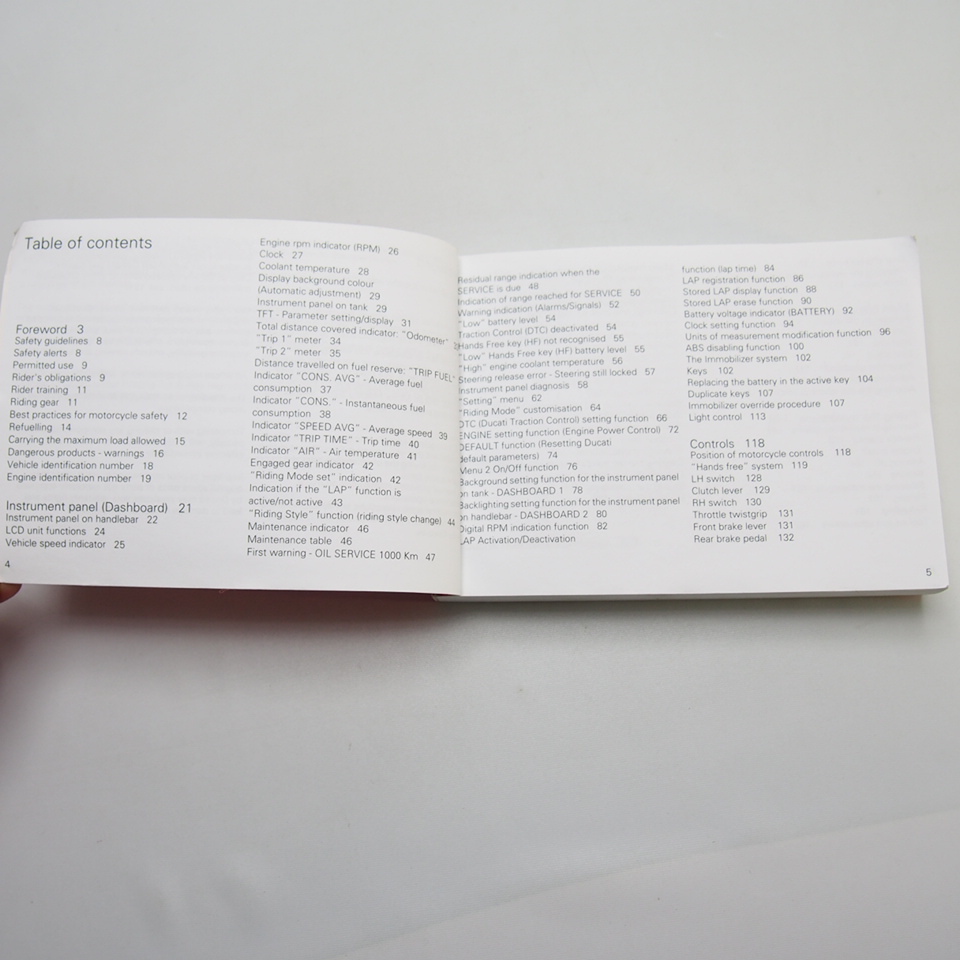 Table of contents
Foreword 3
Safety guidelines 8
Safety alerts 8
Permitted use 9
Rider's obligations 9
Rider training 11
Riding gear 11
Best practices for motorcycle safety 12
Refuelling 14
Carrying the maximum load allowed 15
Dangerous products - warnings 16
Vehicle identification number 18
Engine identification number 19
Instrument panel (Dashboard) 21
Instrument panel on handlebar 22
LCD unit functions 24
Vehicle speed indicator 25
4
Engine rpm indicator (RPM) 26
Clock 27
Coolant temperature 28
Display background colour
(Automatic adjustment) 29
Instrument panel on tank 29
TFT - Parameter setting/display 31
Total distance covered indicator: "Odometer"
"Trip 1" meter 34
"Trip 2" meter 35
Distance travelled on fuel reserve: "TRIP FUEL"
Indicator "CONS. AVG" - Average fuel
consumption 37
Indicator "CONS." - Instantaneous fuel
consumption 38
Indicator "SPEED AVG" - Average speed 39
Indicator "TRIP TIME" - Trip time 40
Indicator "AIR" - Air temperature 41
Engaged gear indicator 42
"Riding Mode set" indication 42
Indication if the "LAP" function is
active/not active 43
"Riding Style" function (riding style change) 44
Maintenance indicator 46
Maintenance table 46
First warning - OIL SERVICE 1000 Km 47
Residual range indication when the
SERVICE is due 48
Indication of range reached for SERVICE 50
Warning indication (Alarms/Signals) 52
"Low" battery level 54
Traction Control (DTC) deactivated 54
Hands Free key (HF) not recognised 55
"Low" Hands Free key (HF) battery level 55
"High" engine coolant temperature 56
Steering release error - Steering still locked 57
Instrument panel diagnosis 58
"Setting" menu 62
"Riding Mode" customisation 64
DTC (Ducati Traction Control) setting function 66
ENGINE setting function (Engine Power Control) 72
DEFAULT function (Resetting Ducati
default parameters) 74
Menu 2 On/Off function 76
Background setting function for the instrument panel
on tank - DASHBOARD 1 78
Backlighting setting function for the instrument panel
on handlebar - DASHBOARD 2 80
Digital RPM indication function 82
LAP Activation/Deactivation
function (lap time) 84
LAP registration function 86
Stored LAP display function 88
Stored LAP erase function 90
Battery voltage indicator (BATTERY) 92
Clock setting function 94
Units of measurement modification function 96
ABS disabling function 100
The Immobilizer system 102
Keys 102
Replacing the battery in the active key 104
Duplicate keys 107
Immobilizer override procedure 107
Light control 113
Controls 118
Position of motorcycle controls 118
"Hands free" system 119
LH switch 128
Clutch lever 129
RH switch 130
Throttle twistgrip 131
Front brake lever 131
Rear brake pedal 132
5